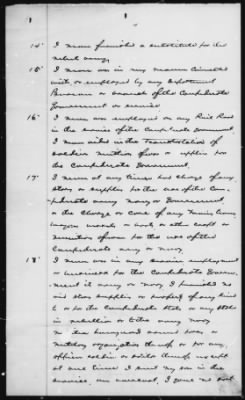 14" I never furnished a substitute for the
rebel army,
15" I never was in any manner connected
with, or employed by any Department
Bureau or branch of the Confederate
Government or service
16" I never was employed on any Rail Road
in the service of the Confederate Government,
I never aided in the Transportation of
soldiers munitions of war or supplies for
the Confederate Government,
17" I never at any time had charge of any
stores or supplies for the use of the Con-
federate army navy or Government
or the charge or care of any trains teams
wagons vessels or boats or other craft or
munitions of war for the use of the
Confederate army or navy
18" I never was in any service employment
or business for the Confederate Govern-
ment it army or navy I furnished no
aid stores supplies or property of any kind
to or for the Confederate State or any State
in rebellion or to the army navy
or military
organization thereof or for any
officer soldier or sailor thereof except
at one time I sent my son in the
service,